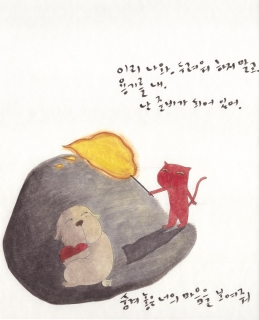 이리 나와, 두려워 하지 말고,
용기를 내.
난 준비가 되어 있어.
숨겨 놓은 너의 마음을 보여줘